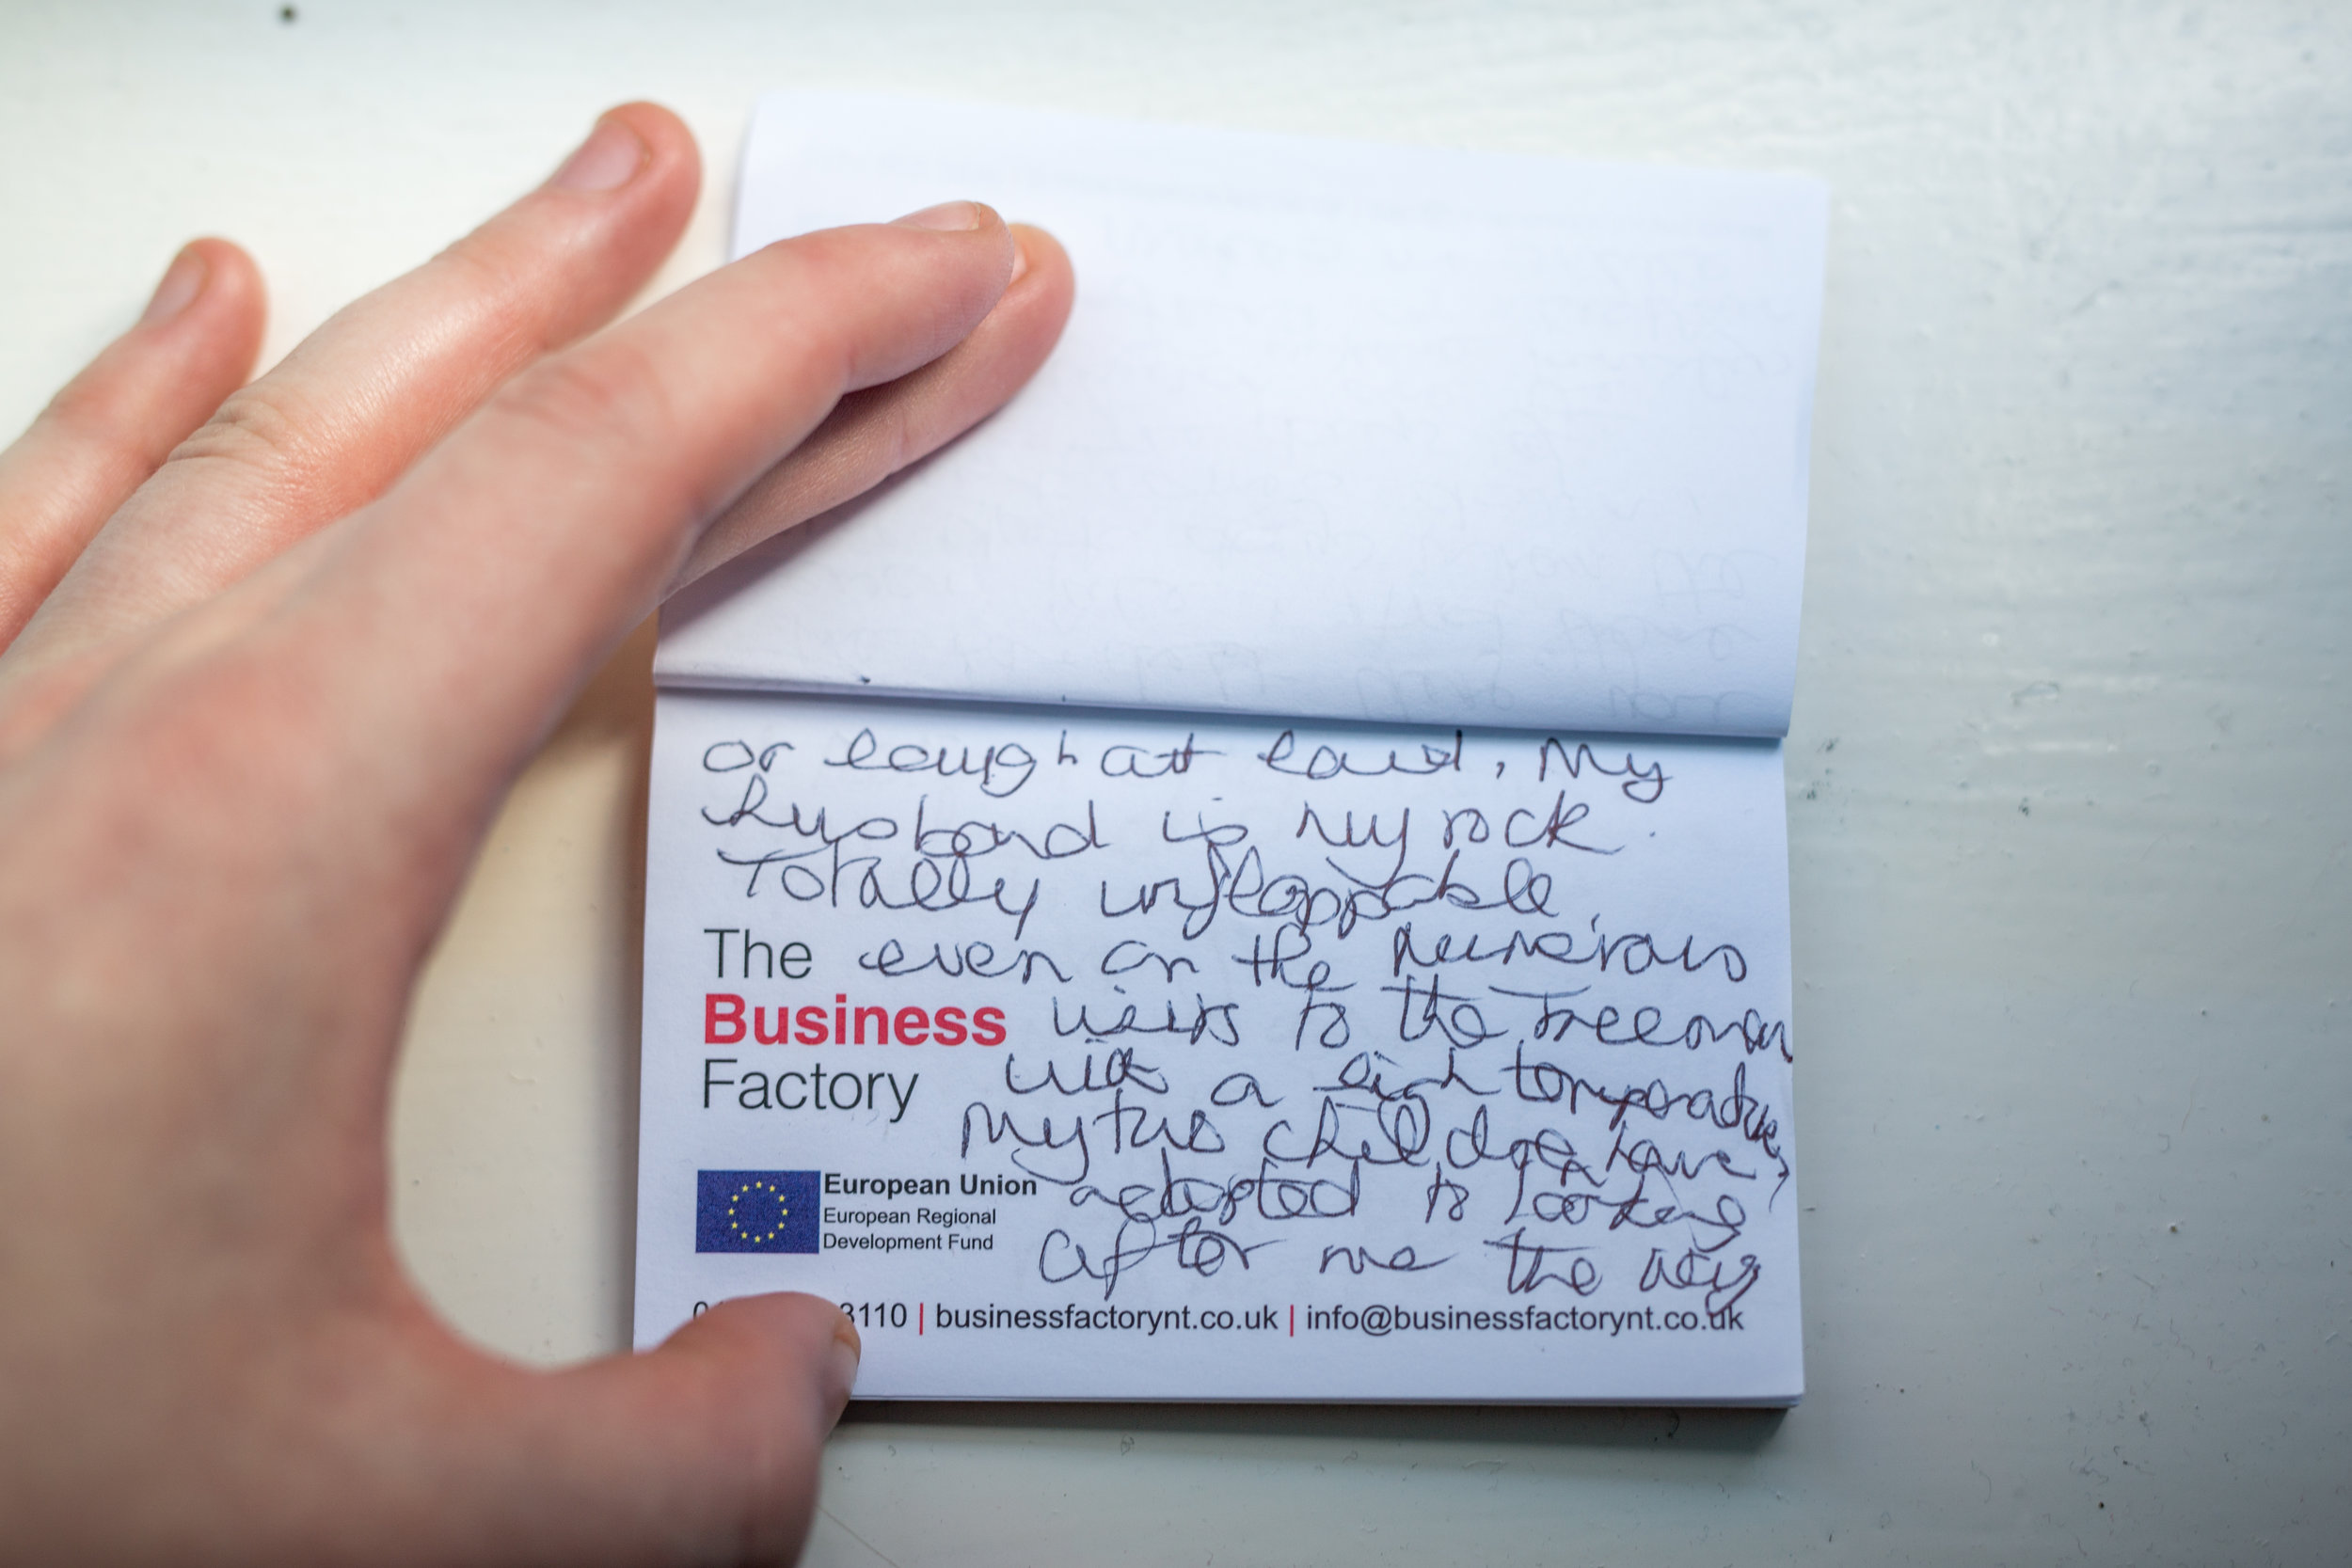 or laugh att loud. My
husband is my rock.
Totally unflappable,
even on the numerous
visits to the Freeman
with a high temperature,
My two children have,
adapted to looking
after me the way
The
Business
Factory
European Union
European Regional
Development Fund
3110 | businessfactorynt.co.uk | info@businessfactorynt.co.uk